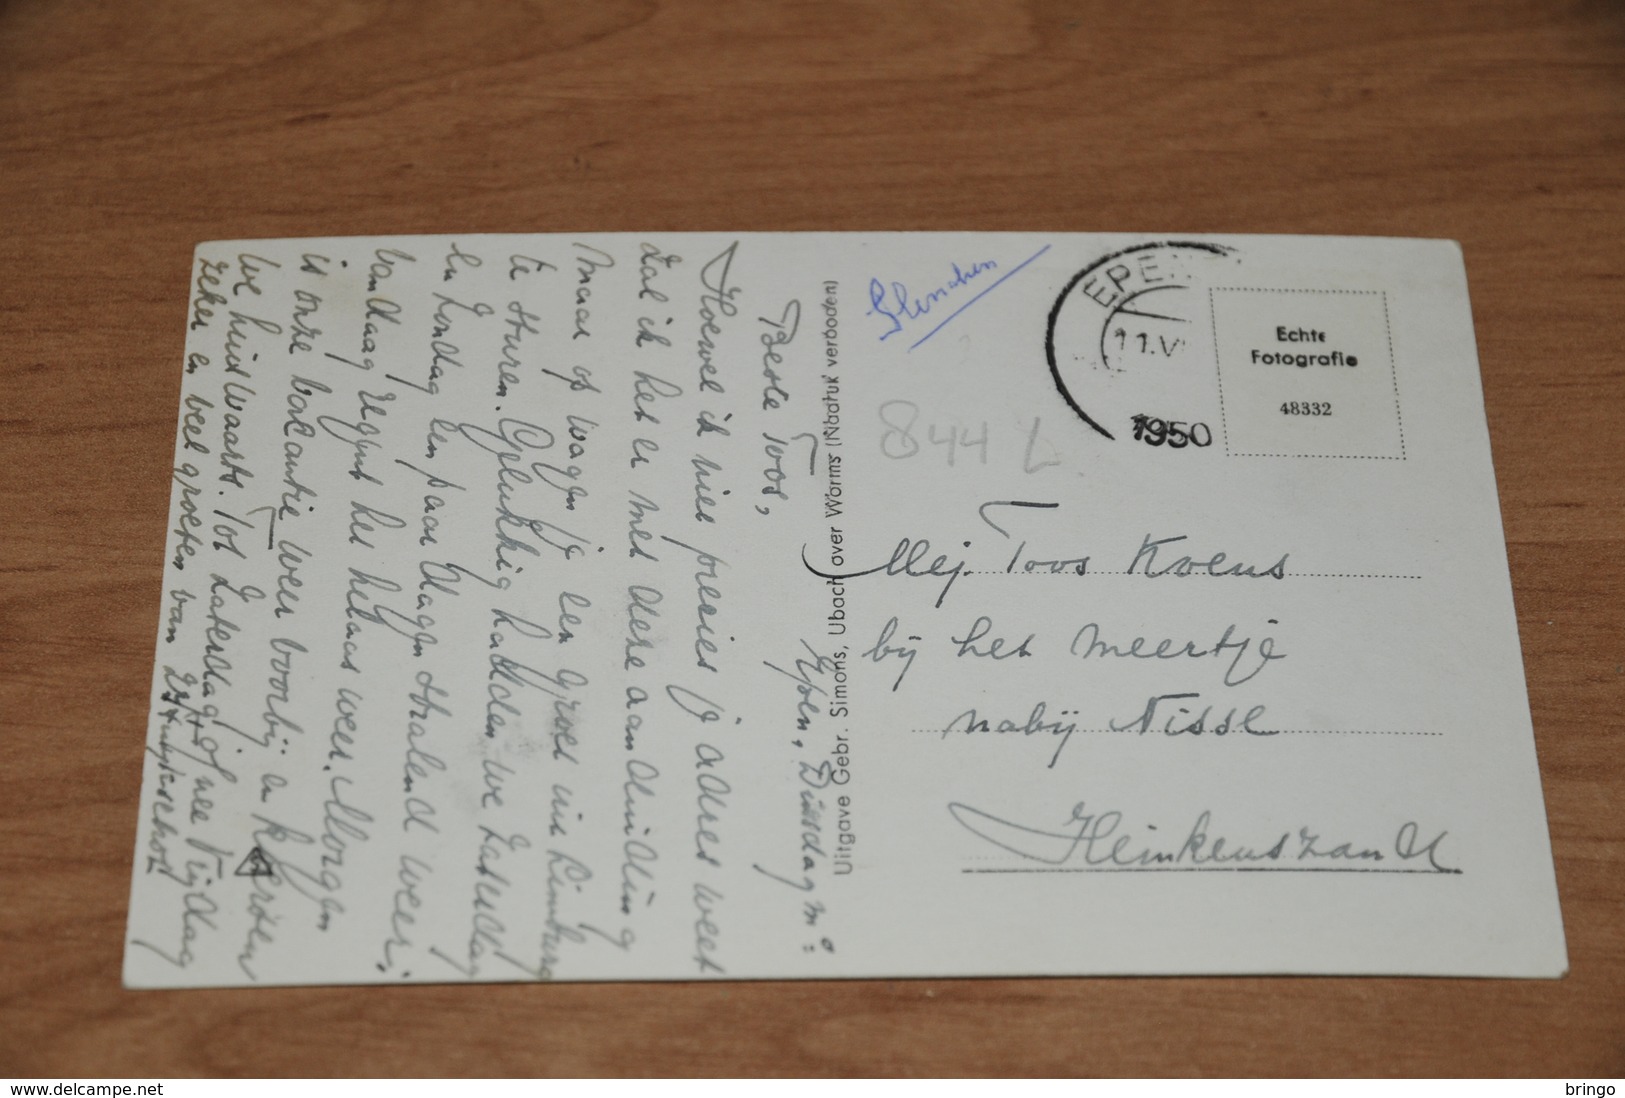 Epen, Dinsdag m:
Beste Toos,
Hoewel ik niet precies je adres weet
zal ik het er met deze aanduiding
maar op wagen je een groet uit Limburg
te sturen. Gelukkig hadden we Zaterdag
en Zondag een paar dagen stralend weer;
vandaag regent het helaas weer. Morgen
is onze vacantie weer voorbij en keren
we huiswaarts. Tot Zaterdag
zeker en veel groeten van
Uitgave Gebr. Simons, Ubach over Worms (Nadruk verboden)
844 L
EPEN
11.V
1950
Echte
Fotografie
48332
Mej. Toos Koens
bij het meertje
nabij Nisse
Heinkenszand
www.delcampe.net
bringo